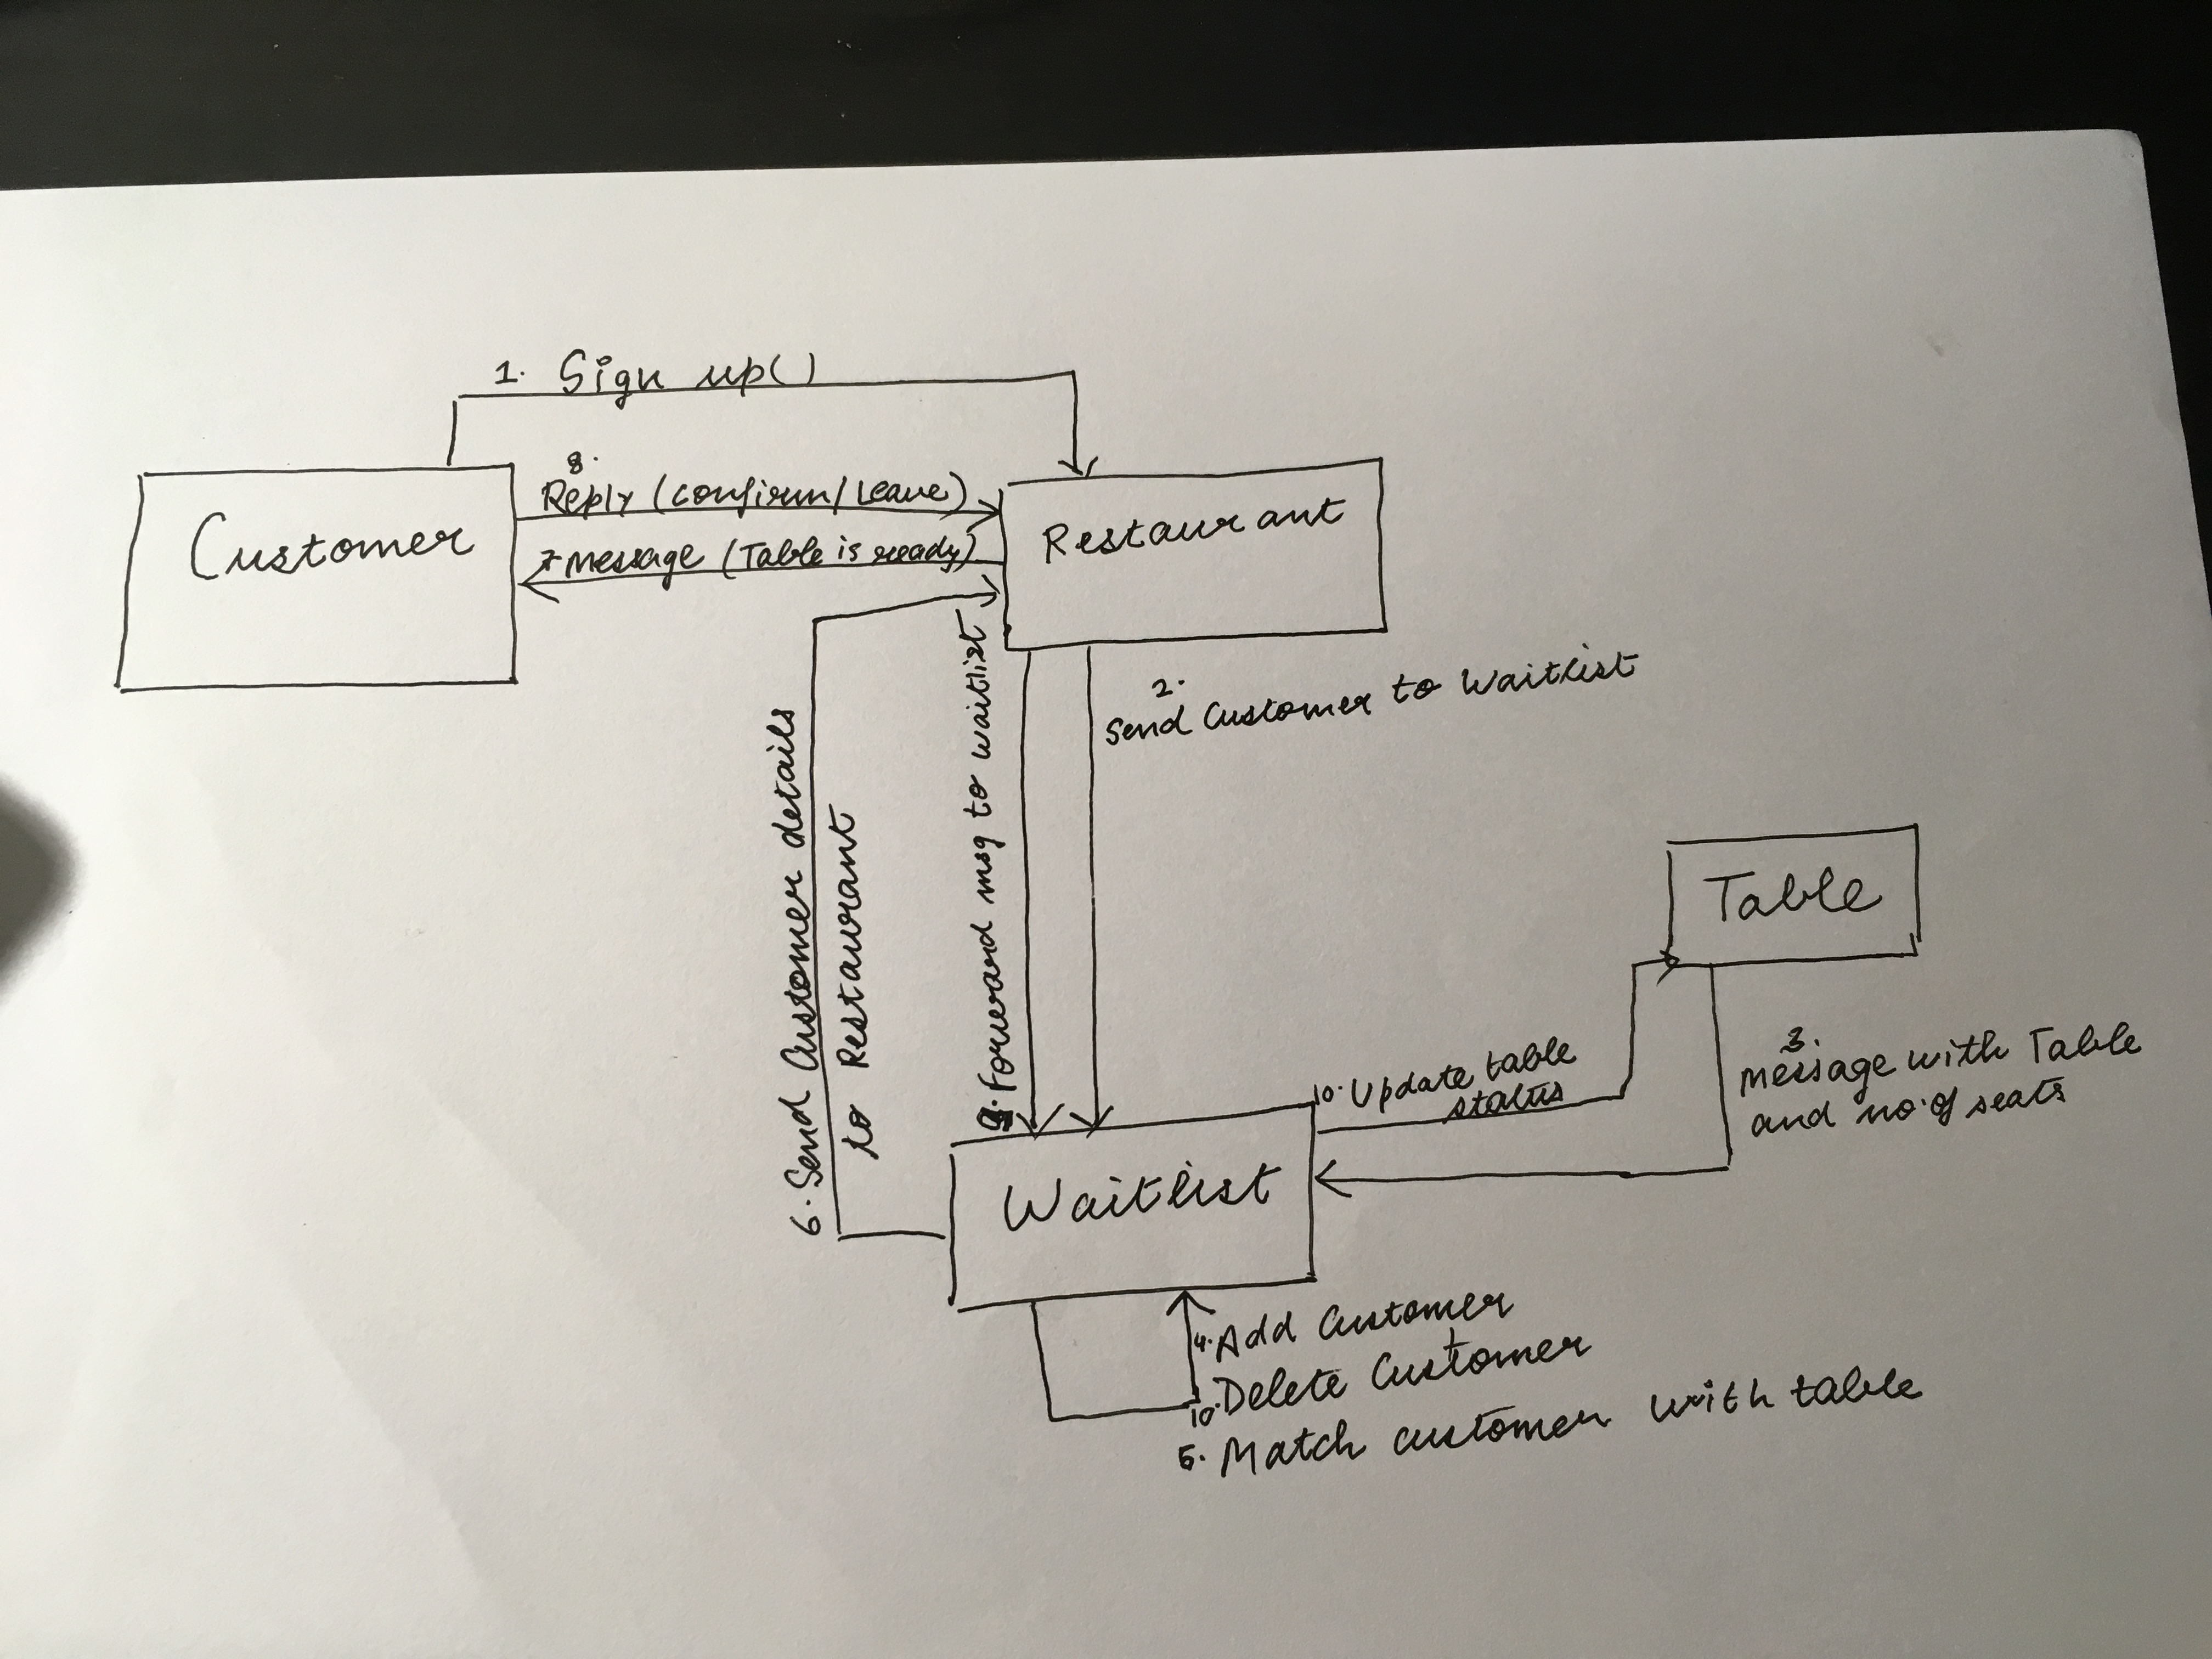 1. Sign up()
8.
Reply (confirm/Leave)
Customer
7 message (Table is ready)
Restaurant
2.
Send Customer to Waitlist
6. Send Customer details
to Restaurant
9. Forward msg to waitlist
Table
3.
Message with Table
and no. of seats
10. Update table
status
Waitlist
4. Add Customer
10. Delete Customer
5. Match customer with table